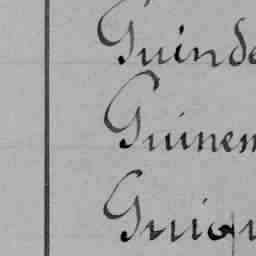 Guinde
Guinem
Guign